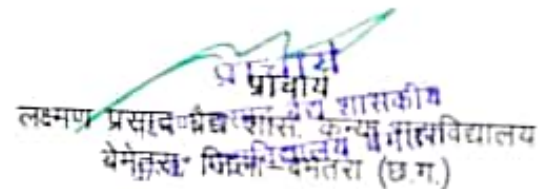 प्राचार्य
प्राचार्य
शासकीय
लक्ष्मण प्रसाद वैद्य शास. कन्या महाविद्यालय
बेमेतरा जिला-बेमेतरा (छ.ग.)